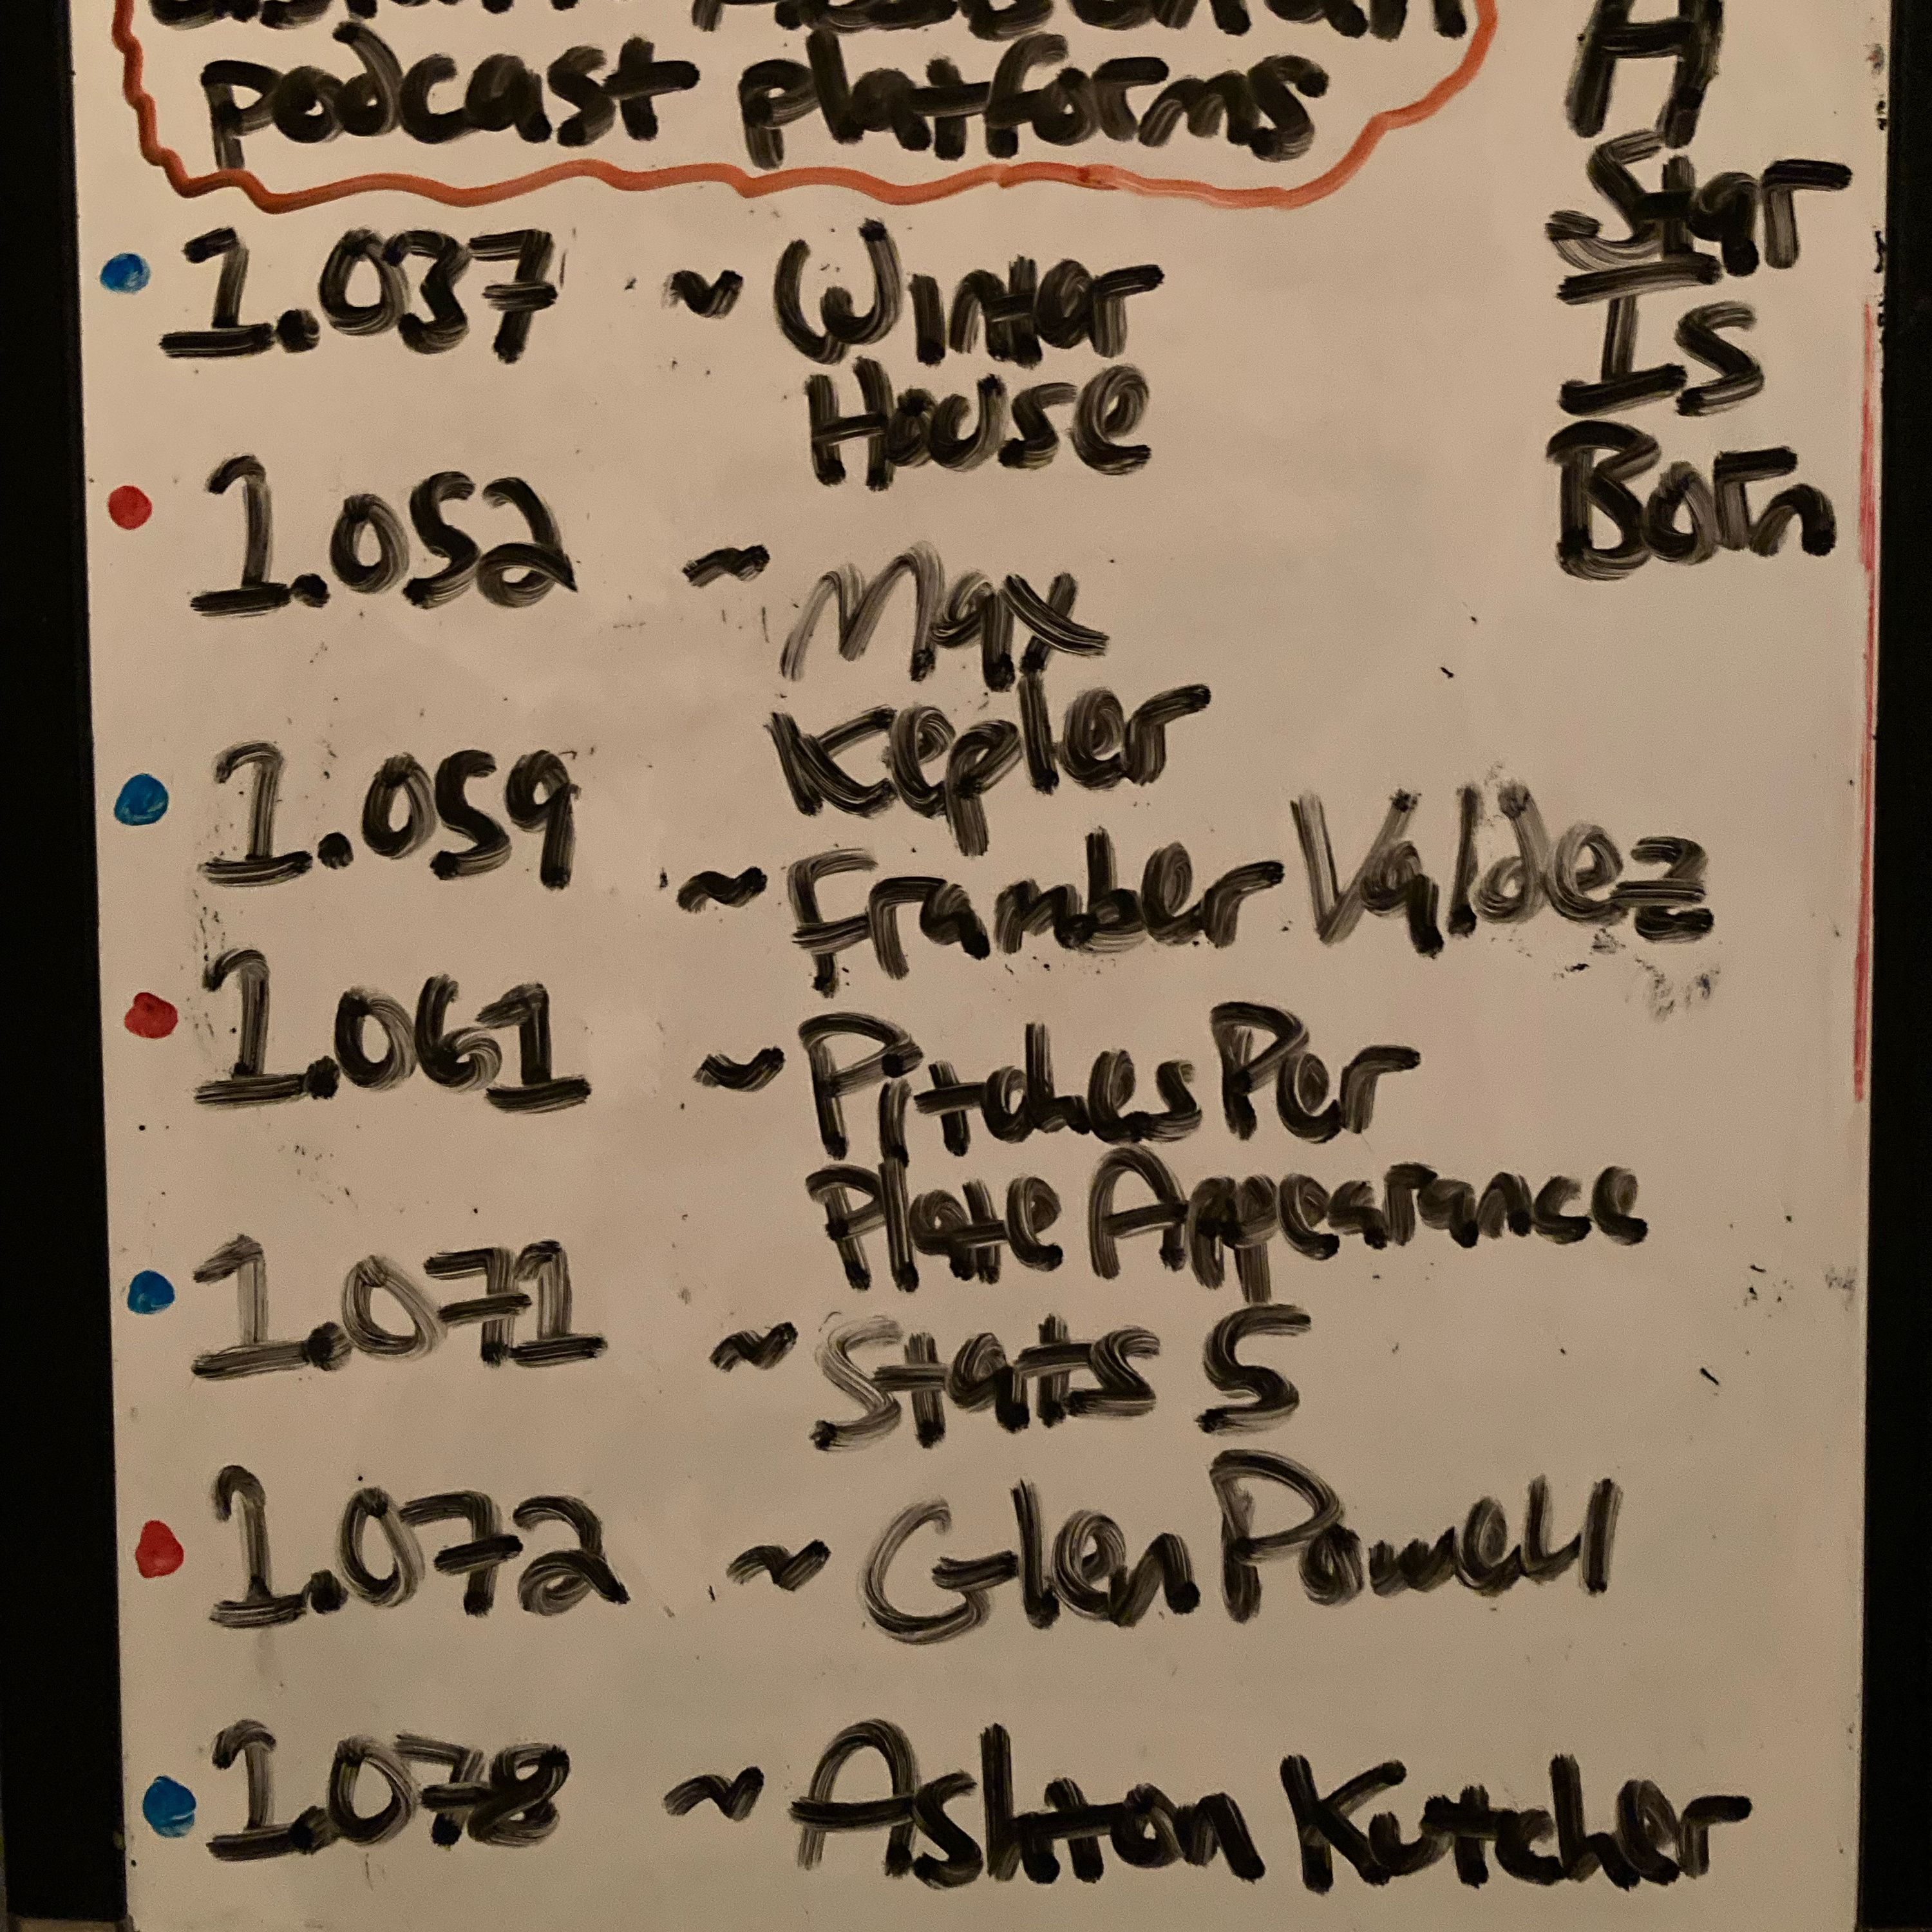 podcast platforms
1.037 ~ Winter
House
1.052 ~ Max
Kepler
1.059 ~ Framber Valdez
1.061 ~ Pitches Per
Plate Appearance
1.071 ~ Stats 5
1.072 ~ Glen Powell
1.078 ~ Ashton Kutcher
A
Star
Is
Born